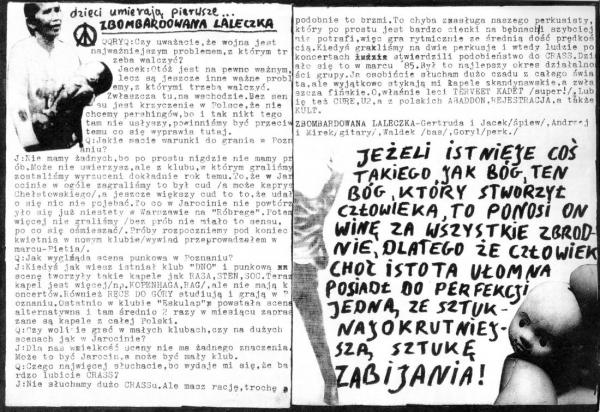 dzieci umierają pierwsze...
ZBOMBARDOWANA LALECZKA
QQRYQ:Czy uważacie,że wojna jest
najważniejszym problemem,z którym tr
zeba walczyć?
Jacek:Otóż jest na pewno ważnym,
lecz są jeszcze inne ważne probl
emy,z którymi trzeba walczyć.
Zwłaszcza tu,na wschodzie.Bez sen
su jest krzyczenie w Polsce,że nie
chcemy pershingów,bo i tak nikt tego
tam nie usłyszy,powinniśmy być przeciw
temu co się wyprawia tutaj.
Q:Jakie macie warunki do grania w Pozn
aniu?
J:Nie mamy żadnych,bo po prostu nigdzie nie mamy pr
ób.Może nie uwierzysz,ale z klubu,w którym graliśmy
zostaliśmy wyrzuceni dokładnie rok temu.To,że w Jar
ocinie w ogóle zagraliśmy to był cud /a może kaprys
Chełstowskiego/,a jeszcze większy cud to to,że udał
o się nic nie pojebać.To co w Jarocinie nie powtórz
yło się już niestety w Warszawie na "Róbrege".Potem
więcej nie graliśmy /bez prób nie miało to sensu,
po co się ośmieszać/.Próby rozpoczniemy pod koniec
kwietnia w nowym klubie/wywiad przeprowadzałem w
marcu-Pietia/.
Q:Jak wygląda scena punkowa w Poznaniu?
J:Kiedyś jak wiesz istniał klub "DNO" i punkową
scenę tworzyły takie kapele jak RASA,STEN,SOC.Teraz
kapel jest więcej/np.KOPENHAGA,RAG/,ale nie mają k
oncertów.Również RĘCE DO GÓRY studiują i grają w P
oznaniu.Ostatnio w klubie "Eskulap" powstała scena
alternatywna i tam średnio 2 razy w miesiącu zapras
zane są kapele z całej Polski.
Q:Czy wolicie grać w małych klubach,czy na dużych
scenach jak w Jarocinie?
J:Dla nas wielkość sceny nie ma żadnego znaczenia.
Może to być Jarocin,a może być mały klub.
Q:Czego najwięcej słuchacie,bo wydaje mi się,że ba
rdzo lubicie CRASS?
J:Nie słuchamy dużo CRASSu.Ale masz rację,trochę
podobnie to brzmi.To chyba zasługa naszego perkusisty,
który po prostu jest bardzo cienki na bębnach i szybciej
nie potrafi,więc gra rytmicznie ze średnią dość prędkoś
cią.Kiedyś graliśmy na dwie perkusje i wtedy ludzie po
koncertach ludzie stwierdzili podobieństwo do CRASS.Dzi
ało się to w marcu 85.Był to najlepszy okres działalno
ści grupy.Ja osobiście słucham dużo czadu z całego świa
ta,ale wyjątkowo stykają mi kapele skandynawskie,a zwła
szcza fińskie.O,właśnie leci TERVEET KADET /super!/.Lub
ię też CURE,U2,a z polskich ABADDON,REJESTRACJA,a także
KULT.
ZBOMBARDOWANA LALECZKA-Gertruda i Jacek/śpiew/,Andrzej
i Mirek/gitary/,Waldek /bas/,Goryl/perk./
JEŻELI ISTNIEJE COŚ
TAKIEGO, JAK BÓG, TEN
BÓG, KTÓRY STWORZYŁ
CZŁOWIEKA, TO PONOSI ON
WINĘ ZA WSZYSTKIE ZBROD-
NIE, DLATEGO ŻE CZŁOWIEK
CHOĆ ISTOTA UŁOMNA
POSIADŁ DO PERFEKCJI
JEDNĄ, ZE SZTUK-
NAJOKRUTNIEJ-
SZĄ, SZTUKĘ
ZABIJANIA!